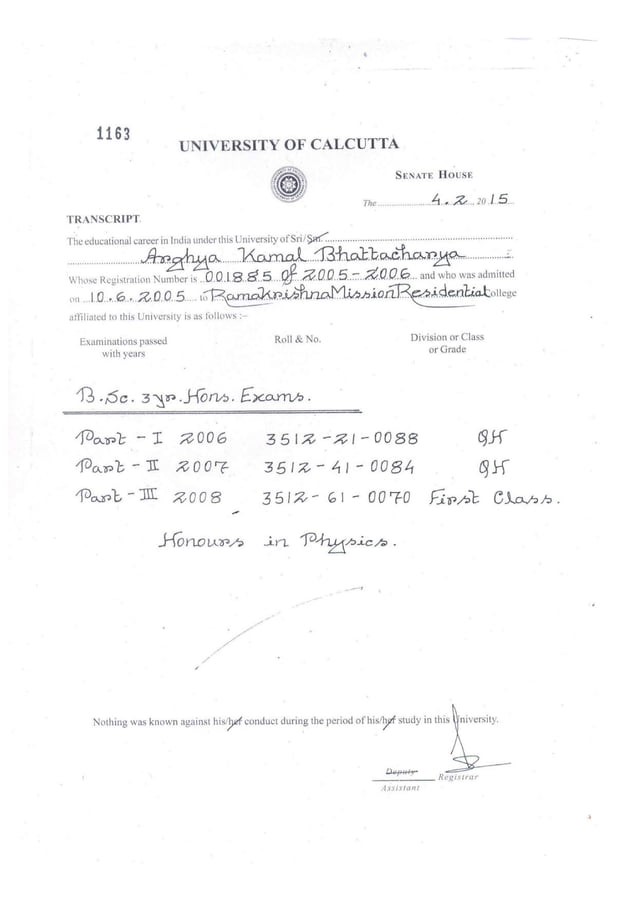 1163
UNIVERSITY OF CALCUTTA
SENATE HOUSE
The 4.2. 2015
TRANSCRIPT.
The educational career in India under this University of Sri/Sm.
Arghya Kamal Bhattacharya
Whose Registration Number is 001885 of 2005-2006 and who was admitted
on 10.6.2005 to Ramakrishna Mission Residential College
affiliated to this University is as follows :–
Examinations passed Roll & No. Division or Class
with years or Grade
B.Sc. 3yr. Hons. Exams.
Part - I 2006 3512-21-0088 QH
Part - II 2007 3512-41-0084 QH
Part - III 2008 3512-61-0070 First Class.
Honours in Physics.
Nothing was known against his/her conduct during the period of his/her study in this University.
Deputy Registrar
Assistant